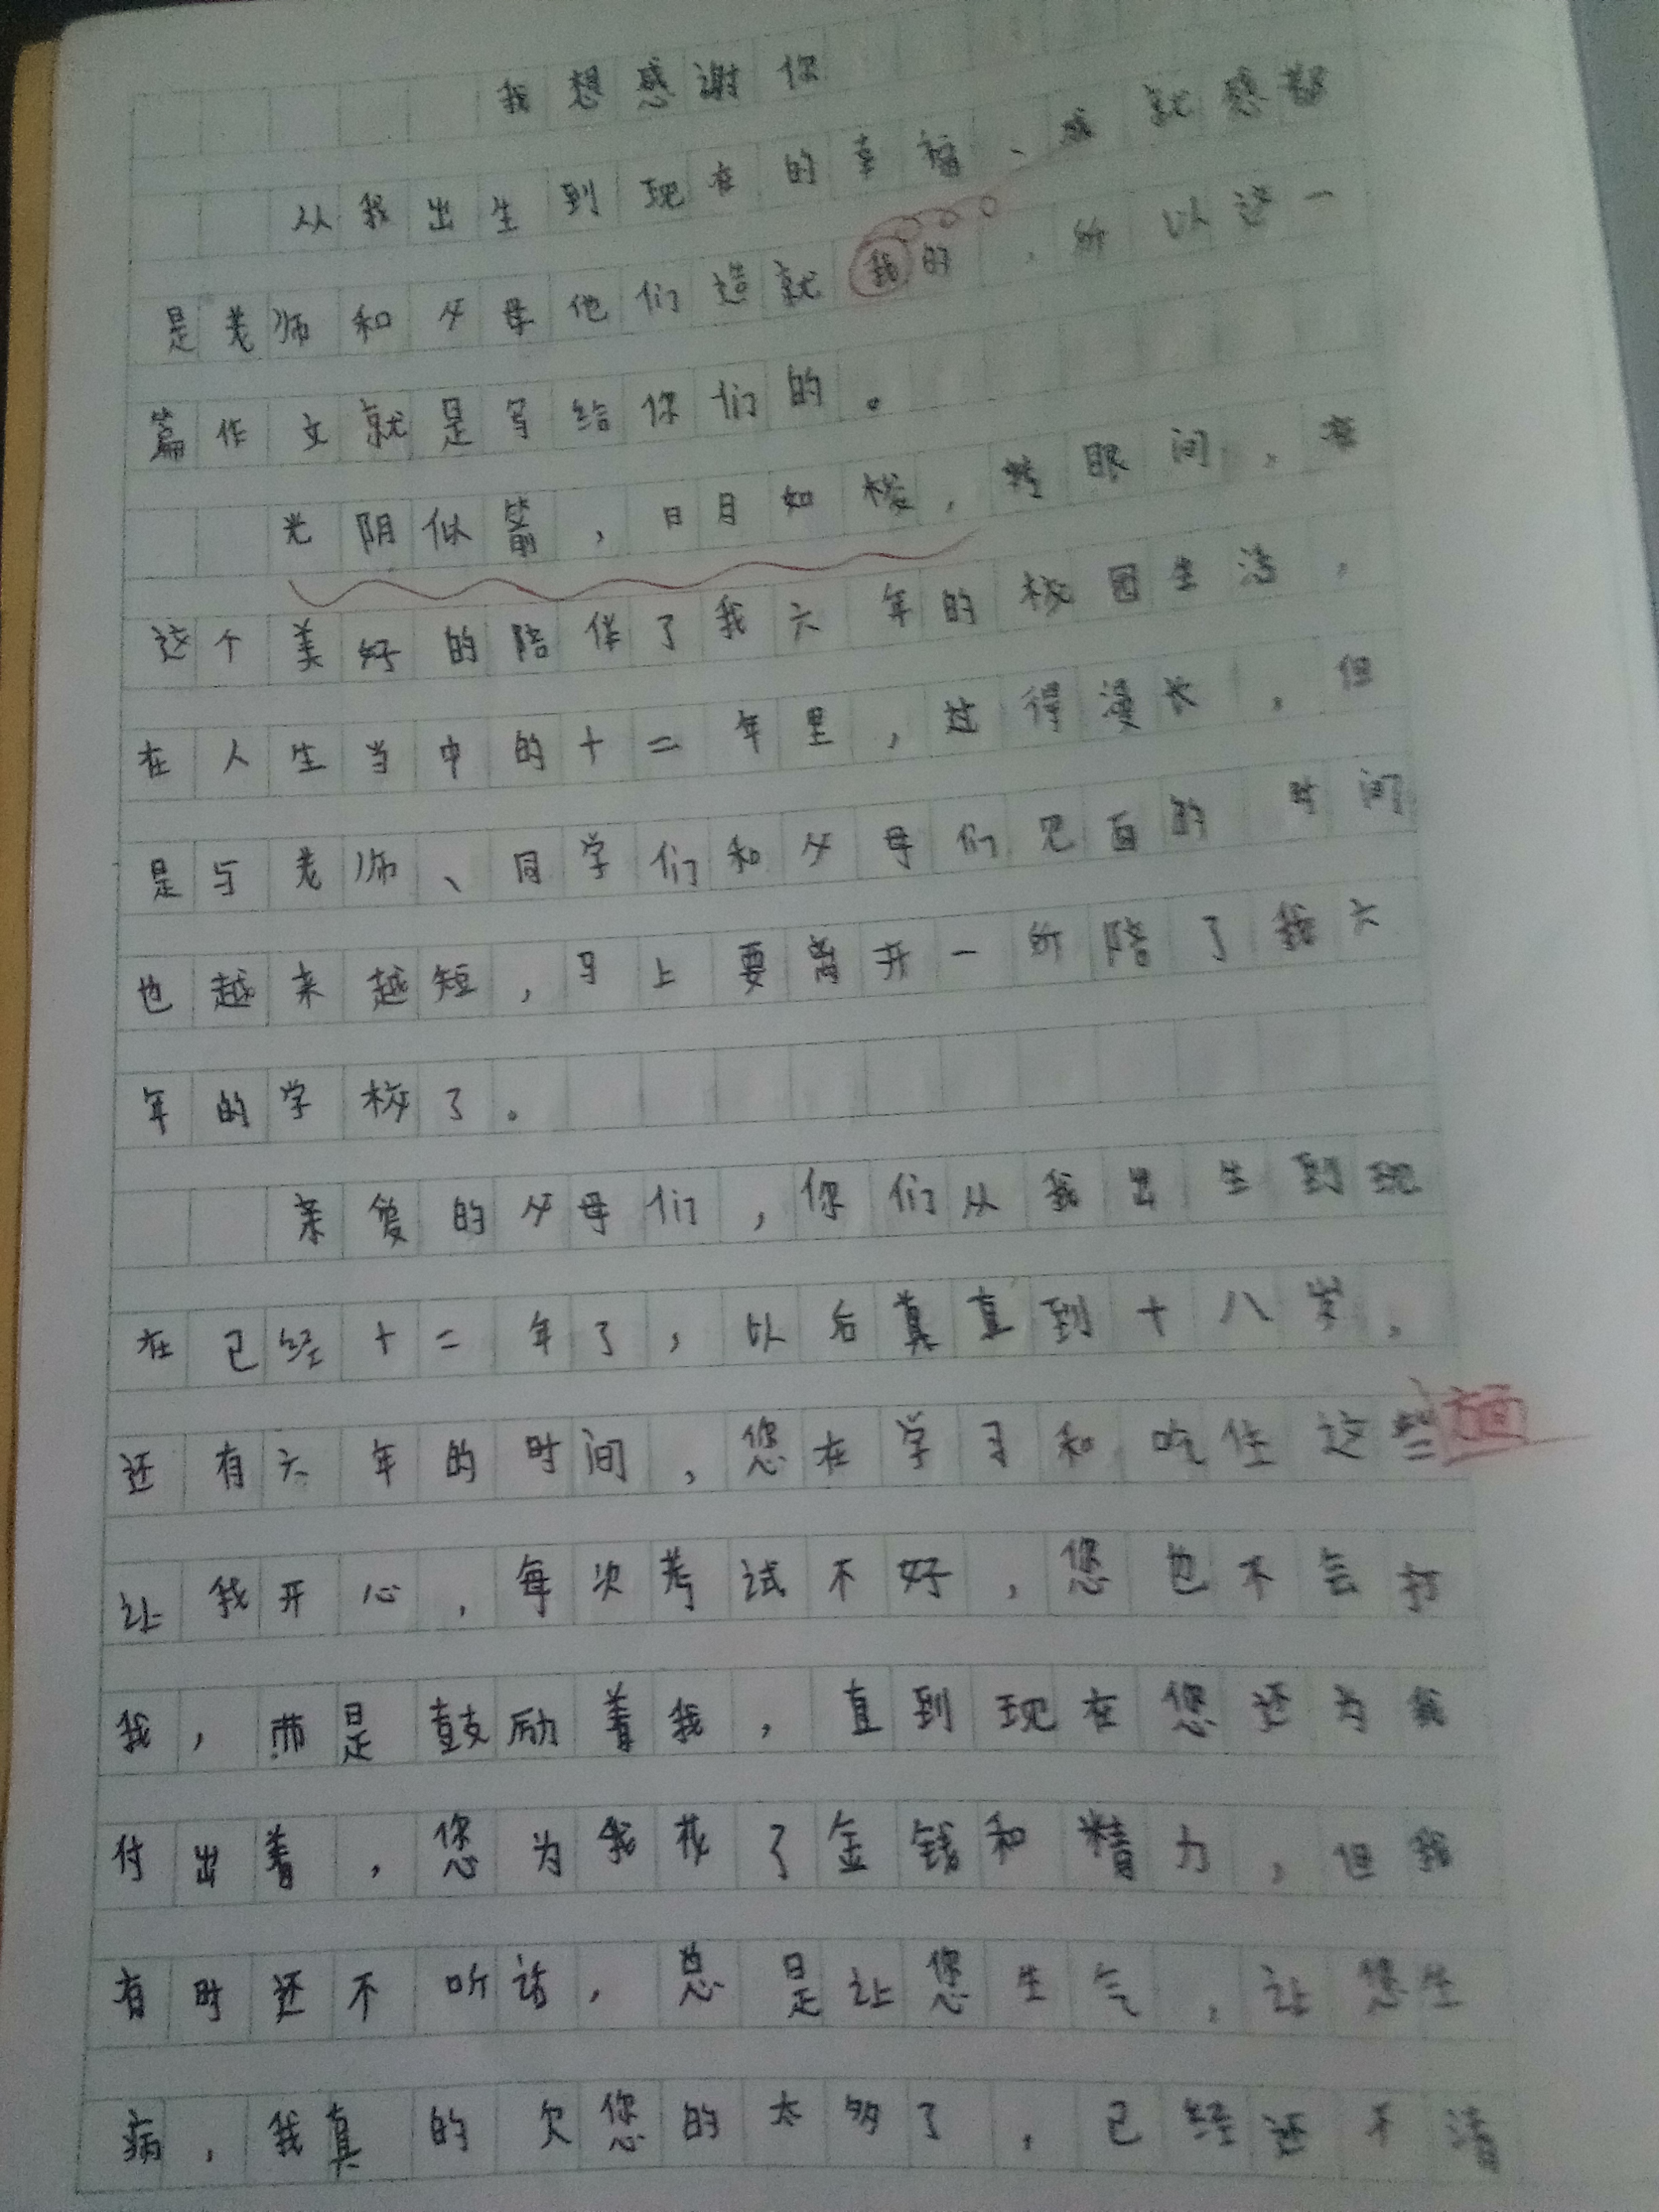 我想感谢你
从我出生到现在的幸福、成就感都
是老师和父母他们造就我的，所以这一
篇作文就是写给你们的。
光阴似箭，日月如梭，转眼间，在
这个美好的陪伴了我六年的校园生活，
在人生当中的十二年里，过得漫长，但
是与老师、同学们和父母们见面的时间
也越来越短，马上要离开一所陪了我六
年的学校了。
亲爱的父母们，你们从我出生到现
在已经十二年了，以后真直到十八岁，
还有六年的时间，您在学习和吃住这些方面
让我开心，每次考试不好，您也不会打
我，而是鼓励着我，直到现在您还为我
付出着，您为我花了金钱和精力，但我
有时还不听话，总是让您生气，让您生
病，我真的欠您的太多了，已经还不清